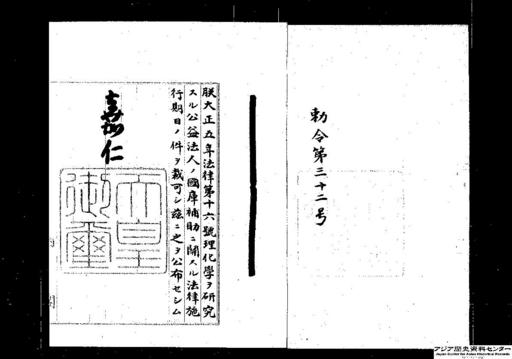 勅令第三十二号
朕大正五年法律第十六號理化學ヲ研究
スル公益法人ノ國庫補助ニ關スル法律施
行期日ノ件ヲ裁可シ茲ニ之ヲ公布セシム
嘉仁
天皇
御璽
内閣
アジア歴史資料センター
Japan Center for Asian Historical Records